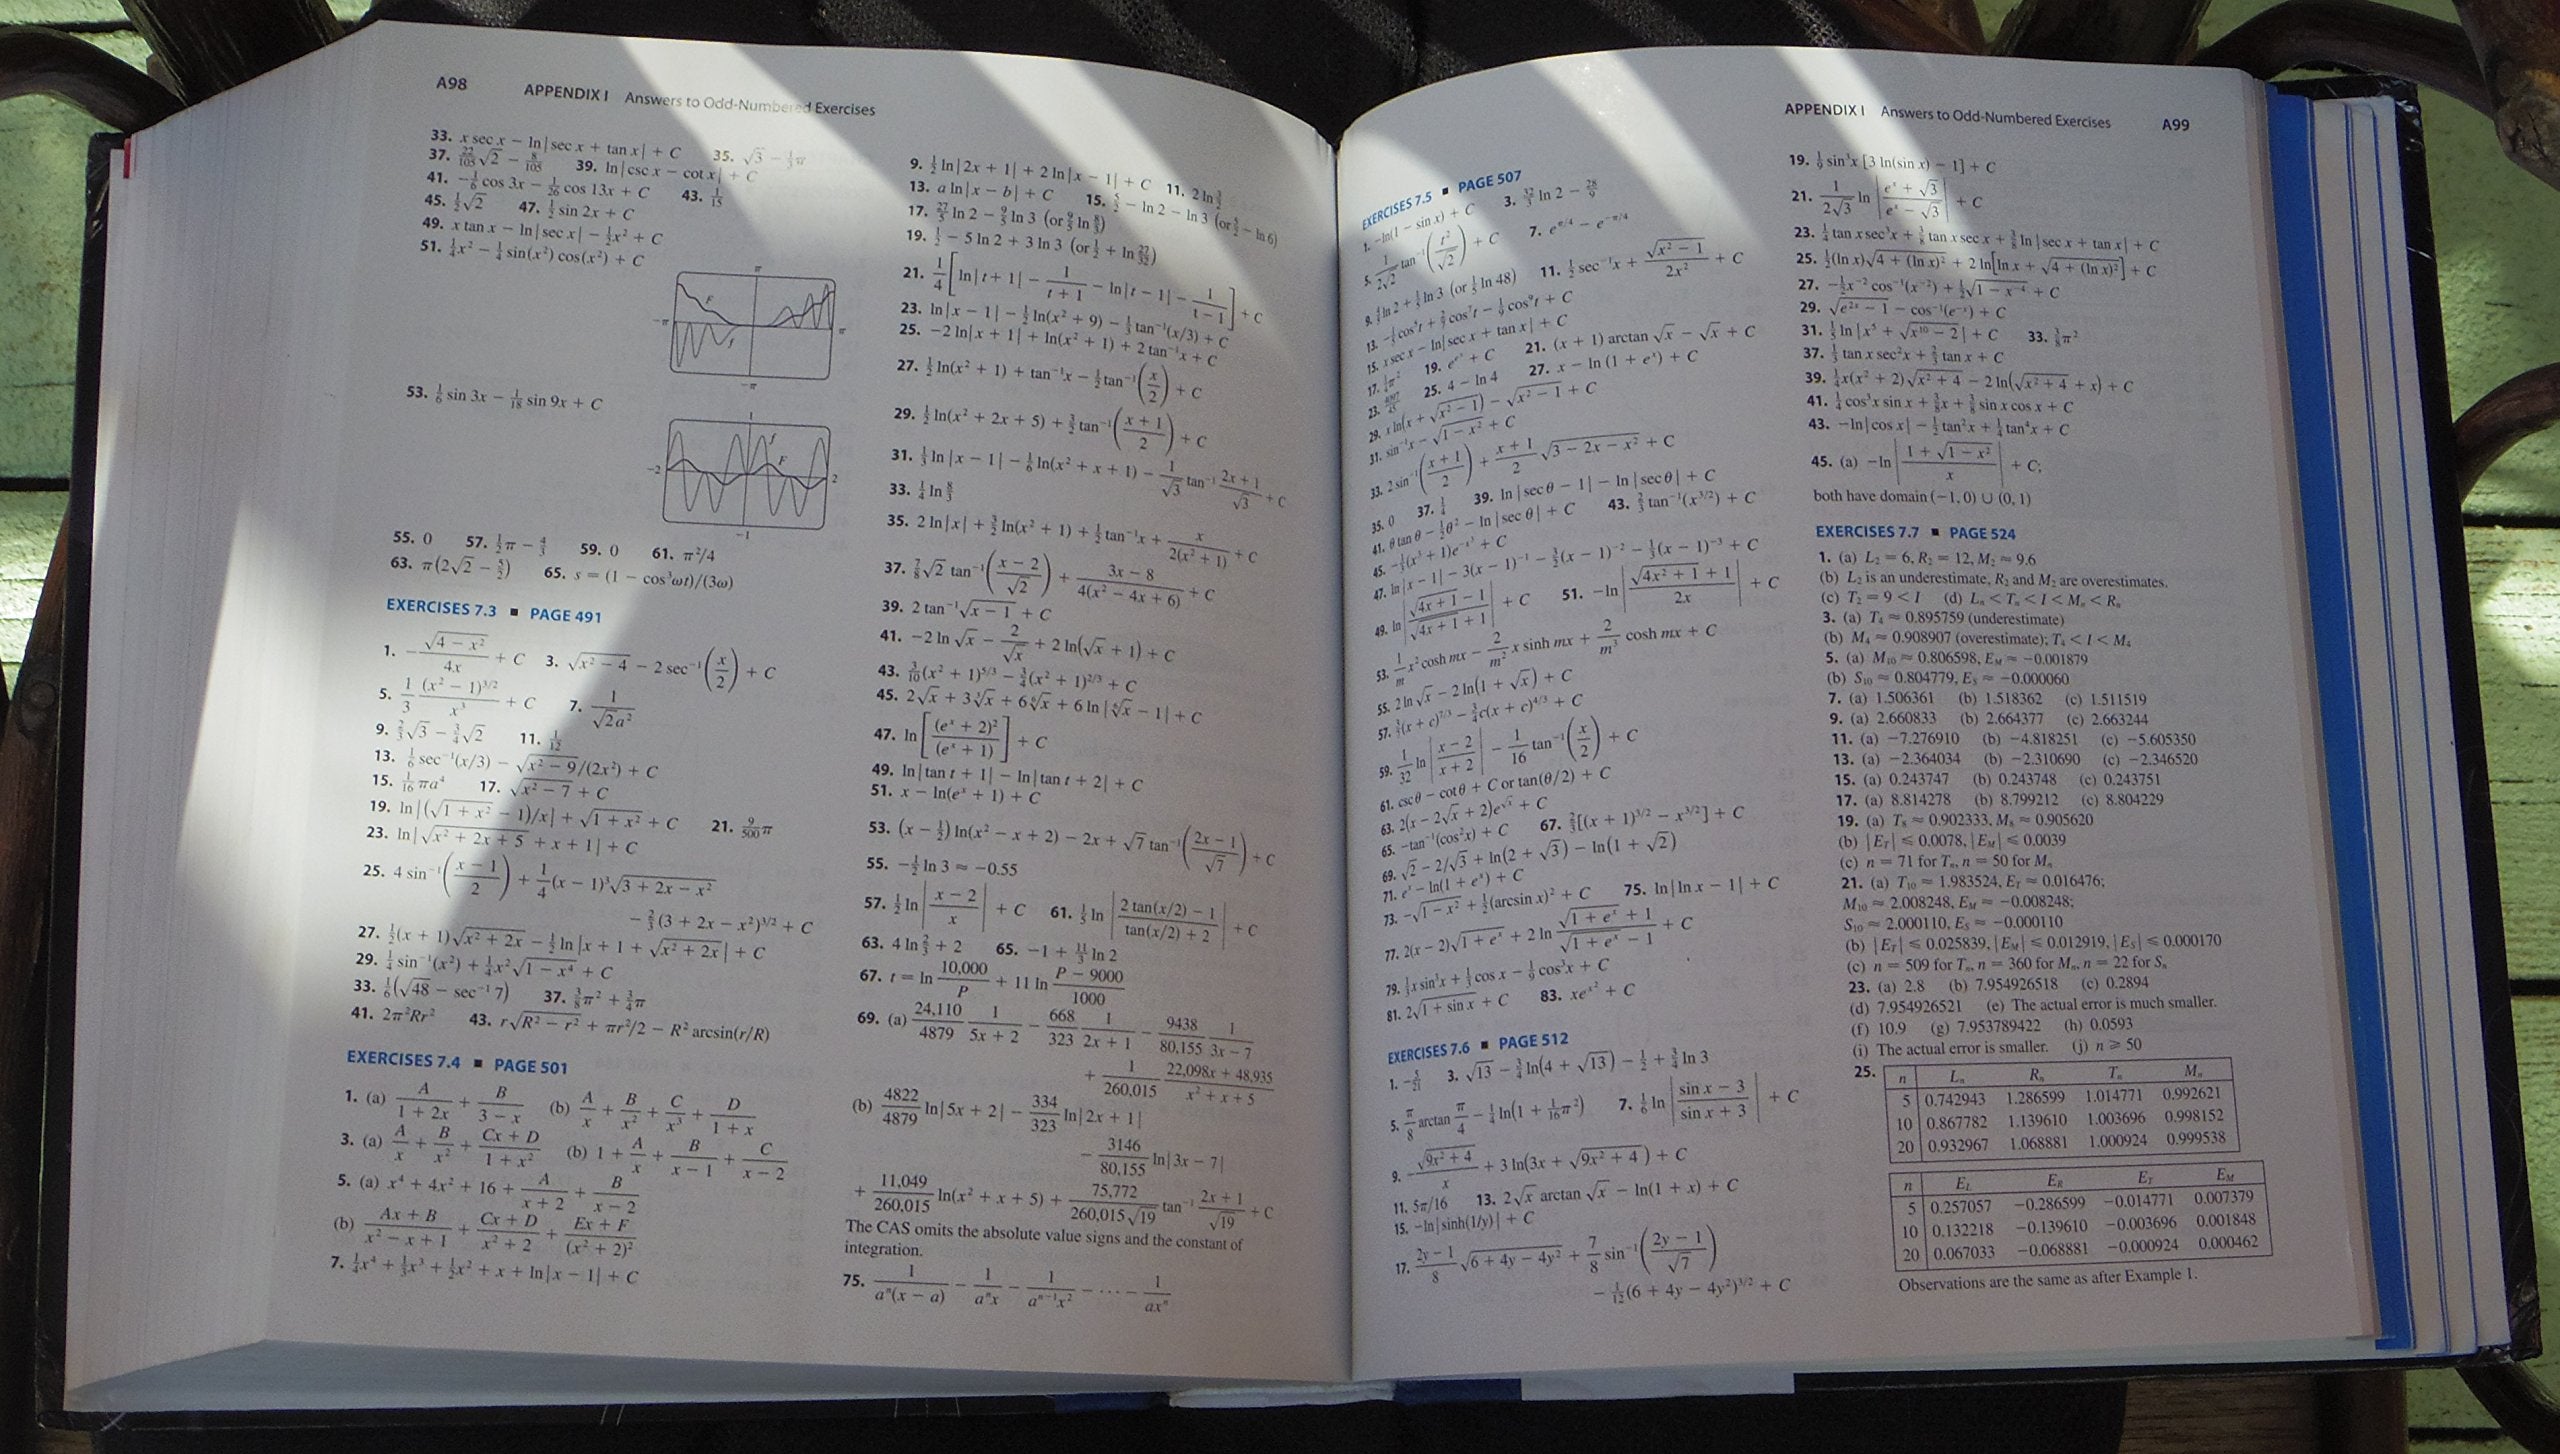 A98 APPENDIX I Answers to Odd-Numbered Exercises
33. x sec x − ln|sec x + tan x| + C 35. √3 − ⅓π
37. 22/105 √2 − 8/105 39. ln|csc x − cot x| + C
41. −1/6 cos 3x − 1/26 cos 13x + C 43. 1/15
45. ½√2 47. ½ sin 2x + C
49. x tan x − ln|sec x| − ½x² + C
51. ¼x² − ¼ sin(x²) cos(x²) + C
π
F
−π π
f
−π
53. 1/6 sin 3x − 1/18 sin 9x + C
1
f
F
−2 2
−1
55. 0 57. ½π − 4/3 59. 0 61. π²/4
63. π(2√2 − 5/2) 65. s = (1 − cos³ωt)/(3ω)
EXERCISES 7.3 ■ PAGE 491
1. −√(4 − x²)/(4x) + C 3. √(x² − 4) − 2 sec⁻¹(x/2) + C
5. 1/3 (x² − 1)^(3/2)/x³ + C 7. 1/(√2a²)
9. ⅔√3 − ¾√2 11. 1/12
13. 1/6 sec⁻¹(x/3) − √(x² − 9)/(2x²) + C
15. 1/16 πa⁴ 17. √(x² − 7) + C
19. ln|(√(1 + x²) − 1)/x| + √(1 + x²) + C 21. 9/500 π
23. ln|√(x² + 2x + 5) + x + 1| + C
25. 4 sin⁻¹((x − 1)/2) + 1/4 (x − 1)³√(3 + 2x − x²)
− ⅔(3 + 2x − x²)^(3/2) + C
27. ½(x + 1)√(x² + 2x) − ½ ln|x + 1 + √(x² + 2x)| + C
29. ¼ sin⁻¹(x²) + ¼x²√(1 − x⁴) + C
33. 1/6(√48 − sec⁻¹ 7) 37. ⅜π² + ¾π
41. 2π²Rr² 43. r√(R² − r²) + πr²/2 − R² arcsin(r/R)
EXERCISES 7.4 ■ PAGE 501
1. (a) A/(1 + 2x) + B/(3 − x) (b) A/x + B/x² + C/x³ + D/(1 + x)
3. (a) A/x + B/x² + (Cx + D)/(1 + x²) (b) 1 + A/x + B/(x − 1) + C/(x − 2)
5. (a) x⁴ + 4x² + 16 + A/(x + 2) + B/(x − 2)
(b) (Ax + B)/(x² − x + 1) + (Cx + D)/(x² + 2) + (Ex + F)/(x² + 2)²
7. ¼x⁴ + ⅓x³ + ½x² + x + ln|x − 1| + C
9. ½ ln|2x + 1| + 2 ln|x − 1| + C 11. 2 ln 3/2
13. a ln|x − b| + C 15. 5/2 − ln 2 − ln 3 (or 5/2 − ln 6)
17. 27/5 ln 2 − 9/5 ln 3 (or 9/5 ln 8/3)
19. ½ − 5 ln 2 + 3 ln 3 (or ½ + ln 27/32)
21. 1/4 [ln|t + 1| − 1/(t + 1) − ln|t − 1| − 1/(t − 1)] + C
23. ln|x − 1| − ½ ln(x² + 9) − ⅓ tan⁻¹(x/3) + C
25. −2 ln|x + 1| + ln(x² + 1) + 2 tan⁻¹x + C
27. ½ ln(x² + 1) + tan⁻¹x − ½ tan⁻¹(x/2) + C
29. ½ ln(x² + 2x + 5) + 3/2 tan⁻¹((x + 1)/2) + C
31. ⅓ ln|x − 1| − 1/6 ln(x² + x + 1) − 1/√3 tan⁻¹ (2x + 1)/√3 + C
33. ¼ ln 8/3
35. 2 ln|x| + 3/2 ln(x² + 1) + ½ tan⁻¹x + x/(2(x² + 1)) + C
37. 7/8 √2 tan⁻¹((x − 2)/√2) + (3x − 8)/(4(x² − 4x + 6)) + C
39. 2 tan⁻¹√(x − 1) + C
41. −2 ln √x − 2/√x + 2 ln(√x + 1) + C
43. 3/10(x² + 1)^(5/3) − ¾(x² + 1)^(2/3) + C
45. 2√x + 3∛x + 6⁶√x + 6 ln|⁶√x − 1| + C
47. ln[(eˣ + 2)²/(eˣ + 1)] + C
49. ln|tan t + 1| − ln|tan t + 2| + C
51. x − ln(eˣ + 1) + C
53. (x − ½) ln(x² − x + 2) − 2x + √7 tan⁻¹((2x − 1)/√7) + C
55. −½ ln 3 ≈ −0.55
57. ½ ln|(x − 2)/x| + C 61. 1/5 ln|(2 tan(x/2) − 1)/(tan(x/2) + 2)| + C
63. 4 ln ⅔ + 2 65. −1 + 11/3 ln 2
67. t = ln 10,000/P + 11 ln (P − 9000)/1000
69. (a) 24,110/4879 1/(5x + 2) − 668/323 1/(2x + 1) − 9438/80,155 1/(3x − 7)
+ 1/260,015 (22,098x + 48,935)/(x² + x + 5)
(b) 4822/4879 ln|5x + 2| − 334/323 ln|2x + 1|
− 3146/80,155 ln|3x − 7|
+ 11,049/260,015 ln(x² + x + 5) + 75,772/(260,015√19) tan⁻¹ (2x + 1)/√19 + C
The CAS omits the absolute value signs and the constant of
integration.
75. 1/(aⁿ(x − a)) − 1/(aⁿx) − 1/(aⁿ⁻¹x²) − ⋯ − 1/(axⁿ)
APPENDIX I Answers to Odd-Numbered Exercises A99
EXERCISES 7.5 ■ PAGE 507
1. −ln(1 − sin x) + C 3. 32/3 ln 2 − 28/9
5. 1/(2√2) tan⁻¹(t²/√2) + C 7. e^(π/4) − e^(−π/4)
9. 4/5 ln 2 + 1/5 ln 3 (or 1/5 ln 48) 11. ½ sec⁻¹x + √(x² − 1)/(2x²) + C
13. −1/5 cos⁵t + 2/7 cos⁷t − 1/9 cos⁹t + C
15. x sec x − ln|sec x + tan x| + C
17. ¼π² 19. e^(eˣ) + C 21. (x + 1) arctan √x − √x + C
23. 4097/45 25. 4 − ln 4 27. x − ln(1 + eˣ) + C
29. x ln(x + √(x² − 1)) − √(x² − 1) + C
31. sin⁻¹x − √(1 − x²) + C
33. 2 sin⁻¹((x + 1)/2) + (x + 1)/2 √(3 − 2x − x²) + C
35. 0 37. ¼ 39. ln|sec θ − 1| − ln|sec θ| + C
41. θ tan θ − ½θ² − ln|sec θ| + C 43. ⅔ tan⁻¹(x^(3/2)) + C
45. −⅓(x³ + 1)e^(−x³) + C
47. ln|x − 1| − 3(x − 1)⁻¹ − 3/2(x − 1)⁻² − ⅓(x − 1)⁻³ + C
49. ln|(√(4x + 1) − 1)/(√(4x + 1) + 1)| + C 51. −ln|(√(4x² + 1) + 1)/(2x)| + C
53. 1/m x² cosh mx − 2/m² x sinh mx + 2/m³ cosh mx + C
55. 2 ln √x − 2 ln(1 + √x) + C
57. 3/7(x + c)^(7/3) − ¾c(x + c)^(4/3) + C
59. 1/32 ln|(x − 2)/(x + 2)| − 1/16 tan⁻¹(x/2) + C
61. csc θ − cot θ + C or tan(θ/2) + C
63. 2(x − 2√x + 2)e^√x + C
65. −tan⁻¹(cos²x) + C 67. ⅔[(x + 1)^(3/2) − x^(3/2)] + C
69. √2 − 2/√3 + ln(2 + √3) − ln(1 + √2)
71. eˣ − ln(1 + eˣ) + C
73. −√(1 − x²) + ½(arcsin x)² + C 75. ln|ln x − 1| + C
77. 2(x − 2)√(1 + eˣ) + 2 ln (√(1 + eˣ) + 1)/(√(1 + eˣ) − 1) + C
79. ⅓x sin³x + ⅓ cos x − 1/9 cos³x + C
81. 2√(1 + sin x) + C 83. xe^(x²) + C
EXERCISES 7.6 ■ PAGE 512
1. −5/21 3. √13 − ¾ ln(4 + √13) − ½ + ¾ ln 3
5. π/8 arctan π/4 − ¼ ln(1 + 1/16 π²) 7. 1/6 ln|(sin x − 3)/(sin x + 3)| + C
9. −√(9x² + 4)/x + 3 ln(3x + √(9x² + 4)) + C
11. 5π/16 13. 2√x arctan √x − ln(1 + x) + C
15. −ln|sinh(1/y)| + C
17. (2y − 1)/8 √(6 + 4y − 4y²) + 7/8 sin⁻¹((2y − 1)/√7)
− 1/12(6 + 4y − 4y²)^(3/2) + C
19. 1/9 sin³x [3 ln(sin x) − 1] + C
21. 1/(2√3) ln|(eˣ + √3)/(eˣ − √3)| + C
23. ¼ tan x sec³x + ⅜ tan x sec x + ⅜ ln|sec x + tan x| + C
25. ½(ln x)√(4 + (ln x)²) + 2 ln[ln x + √(4 + (ln x)²)] + C
27. −½x⁻² cos⁻¹(x⁻²) + ½√(1 − x⁻⁴) + C
29. √(e²ˣ − 1) − cos⁻¹(e⁻ˣ) + C
31. 1/5 ln|x⁵ + √(x¹⁰ − 2)| + C 33. ⅜π²
37. ⅓ tan x sec²x + ⅔ tan x + C
39. ¼x(x² + 2)√(x² + 4) − 2 ln(√(x² + 4) + x) + C
41. ¼ cos³x sin x + ⅜x + ⅜ sin x cos x + C
43. −ln|cos x| − ½ tan²x + ¼ tan⁴x + C
45. (a) −ln|(1 + √(1 − x²))/x| + C;
both have domain (−1, 0) ∪ (0, 1)
EXERCISES 7.7 ■ PAGE 524
1. (a) L₂ = 6, R₂ = 12, M₂ ≈ 9.6
(b) L₂ is an underestimate, R₂ and M₂ are overestimates.
(c) T₂ = 9 < I (d) Lₙ < Tₙ < I < Mₙ < Rₙ
3. (a) T₄ ≈ 0.895759 (underestimate)
(b) M₄ ≈ 0.908907 (overestimate); T₄ < I < M₄
5. (a) M₁₀ ≈ 0.806598, E_M ≈ −0.001879
(b) S₁₀ ≈ 0.804779, E_S ≈ −0.000060
7. (a) 1.506361 (b) 1.518362 (c) 1.511519
9. (a) 2.660833 (b) 2.664377 (c) 2.663244
11. (a) −7.276910 (b) −4.818251 (c) −5.605350
13. (a) −2.364034 (b) −2.310690 (c) −2.346520
15. (a) 0.243747 (b) 0.243748 (c) 0.243751
17. (a) 8.814278 (b) 8.799212 (c) 8.804229
19. (a) T₈ ≈ 0.902333, M₈ ≈ 0.905620
(b) |E_T| ≤ 0.0078, |E_M| ≤ 0.0039
(c) n = 71 for Tₙ, n = 50 for Mₙ
21. (a) T₁₀ ≈ 1.983524, E_T ≈ 0.016476;
M₁₀ ≈ 2.008248, E_M ≈ −0.008248;
S₁₀ ≈ 2.000110, E_S ≈ −0.000110
(b) |E_T| ≤ 0.025839, |E_M| ≤ 0.012919, |E_S| ≤ 0.000170
(c) n = 509 for Tₙ, n = 360 for Mₙ, n = 22 for Sₙ
23. (a) 2.8 (b) 7.954926518 (c) 0.2894
(d) 7.954926521 (e) The actual error is much smaller.
(f) 10.9 (g) 7.953789422 (h) 0.0593
(i) The actual error is smaller. (j) n ≥ 50
25. n Lₙ Rₙ Tₙ Mₙ
5 0.742943 1.286599 1.014771 0.992621
10 0.867782 1.139610 1.003696 0.998152
20 0.932967 1.068881 1.000924 0.999538
n E_L E_R E_T E_M
5 0.257057 −0.286599 −0.014771 0.007379
10 0.132218 −0.139610 −0.003696 0.001848
20 0.067033 −0.068881 −0.000924 0.000462
Observations are the same as after Example 1.